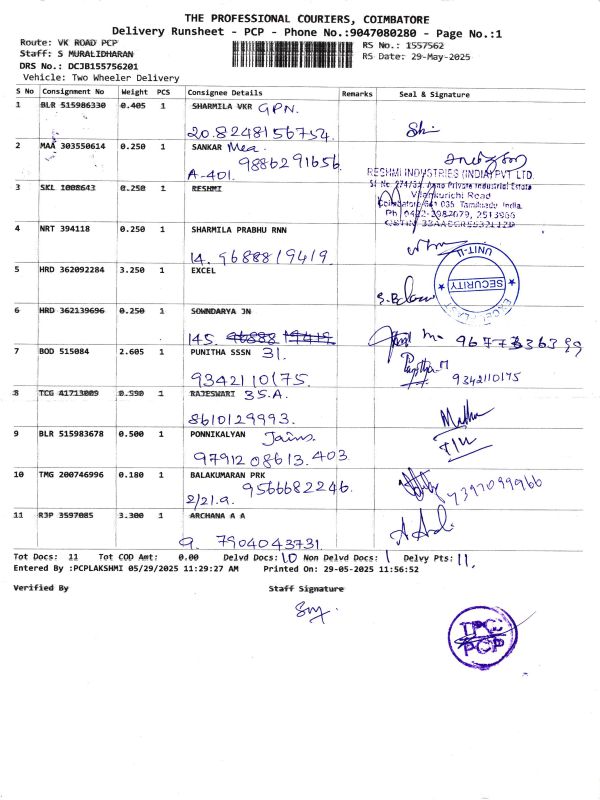 THE PROFESSIONAL COURIERS, COIMBATORE
Delivery Runsheet - PCP - Phone No.:9047080280 - Page No.:1
Route: VK ROAD PCP
RS No.: 1557562
Staff: S MURALIDHARAN
RS Date: 29-May-2025
DRS No.: DCJB155756201
Vehicle: Two Wheeler Delivery
S No Consignment No Weight PCS Consignee Details Remarks Seal & Signature
1 BLR 515986330 0.405 1 SHARMILA VKR GPN.
20.8248156754.
2 MAA 303550614 0.250 1 SANKAR Mea.
9886291656.
A-401.
RESHMI INDUSTRIES (INDIA) PVT. LTD.
3 SKL 1008643 0.250 1 RESHMI
SF No. 274/32, Anna Private Industrial Estate
Vilankurichi Road
Coimbatore-641 035. Tamilnadu, India.
4 NRT 394118 0.250 1 SHARMILA PRABHU RNN
14. 9688819419.
5 HRD 362092284 3.250 1 EXCEL
UNIT-II
SECURITY
6 HRD 362139696 0.250 1 SOWNDARYA JN
145. 96888 19419
7 BOD 515084 2.605 1 PUNITHA SSSN 31.
9342110175.
9342110175
8 TCG 41713009 0.590 1 RAJESWARI 35.A.
8610129993.
9 BLR 515983678 0.500 1 PONNIKALYAN Jains.
9791208613. 403
10 TMG 200746996 0.180 1 BALAKUMARAN PRK
9566682246.
2/21.a.
7397099966
11 RJP 3597085 3.300 1 ARCHANA A A
9. 7904043731.
Tot Docs: 11 Tot COD Amt: 0.00 Delvd Docs: 10 Non Delvd Docs: 1 Delvy Pts: 11.
Entered By :PCPLAKSHMI 05/29/2025 11:29:27 AM Printed On: 29-05-2025 11:56:52
Verified By Staff Signature
TPC
PCP